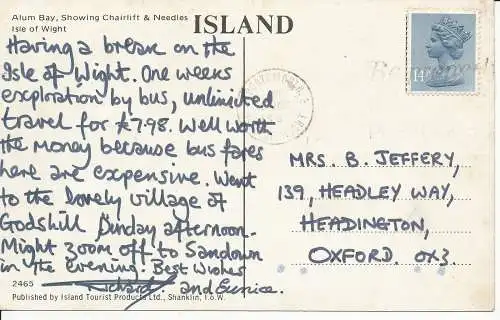 Alum Bay, Showing Chairlift & Needles
Isle of Wight
ISLAND
14
Having a break on the
Isle of Wight. One weeks
exploration by bus, unlimited
travel for £7.98. Well worth
the money because bus fares
here are expensive. Went
to the lovely village of
Godshill Sunday afternoon.
Might zoom off to Sandown
in the evening. Best Wishes
Richard and Eunice.
MRS. B. JEFFERY,
139, HEADLEY WAY,
HEADINGTON,
OXFORD. OX3.
2465
Published by Island Tourist Products Ltd., Shanklin, I.o.W.